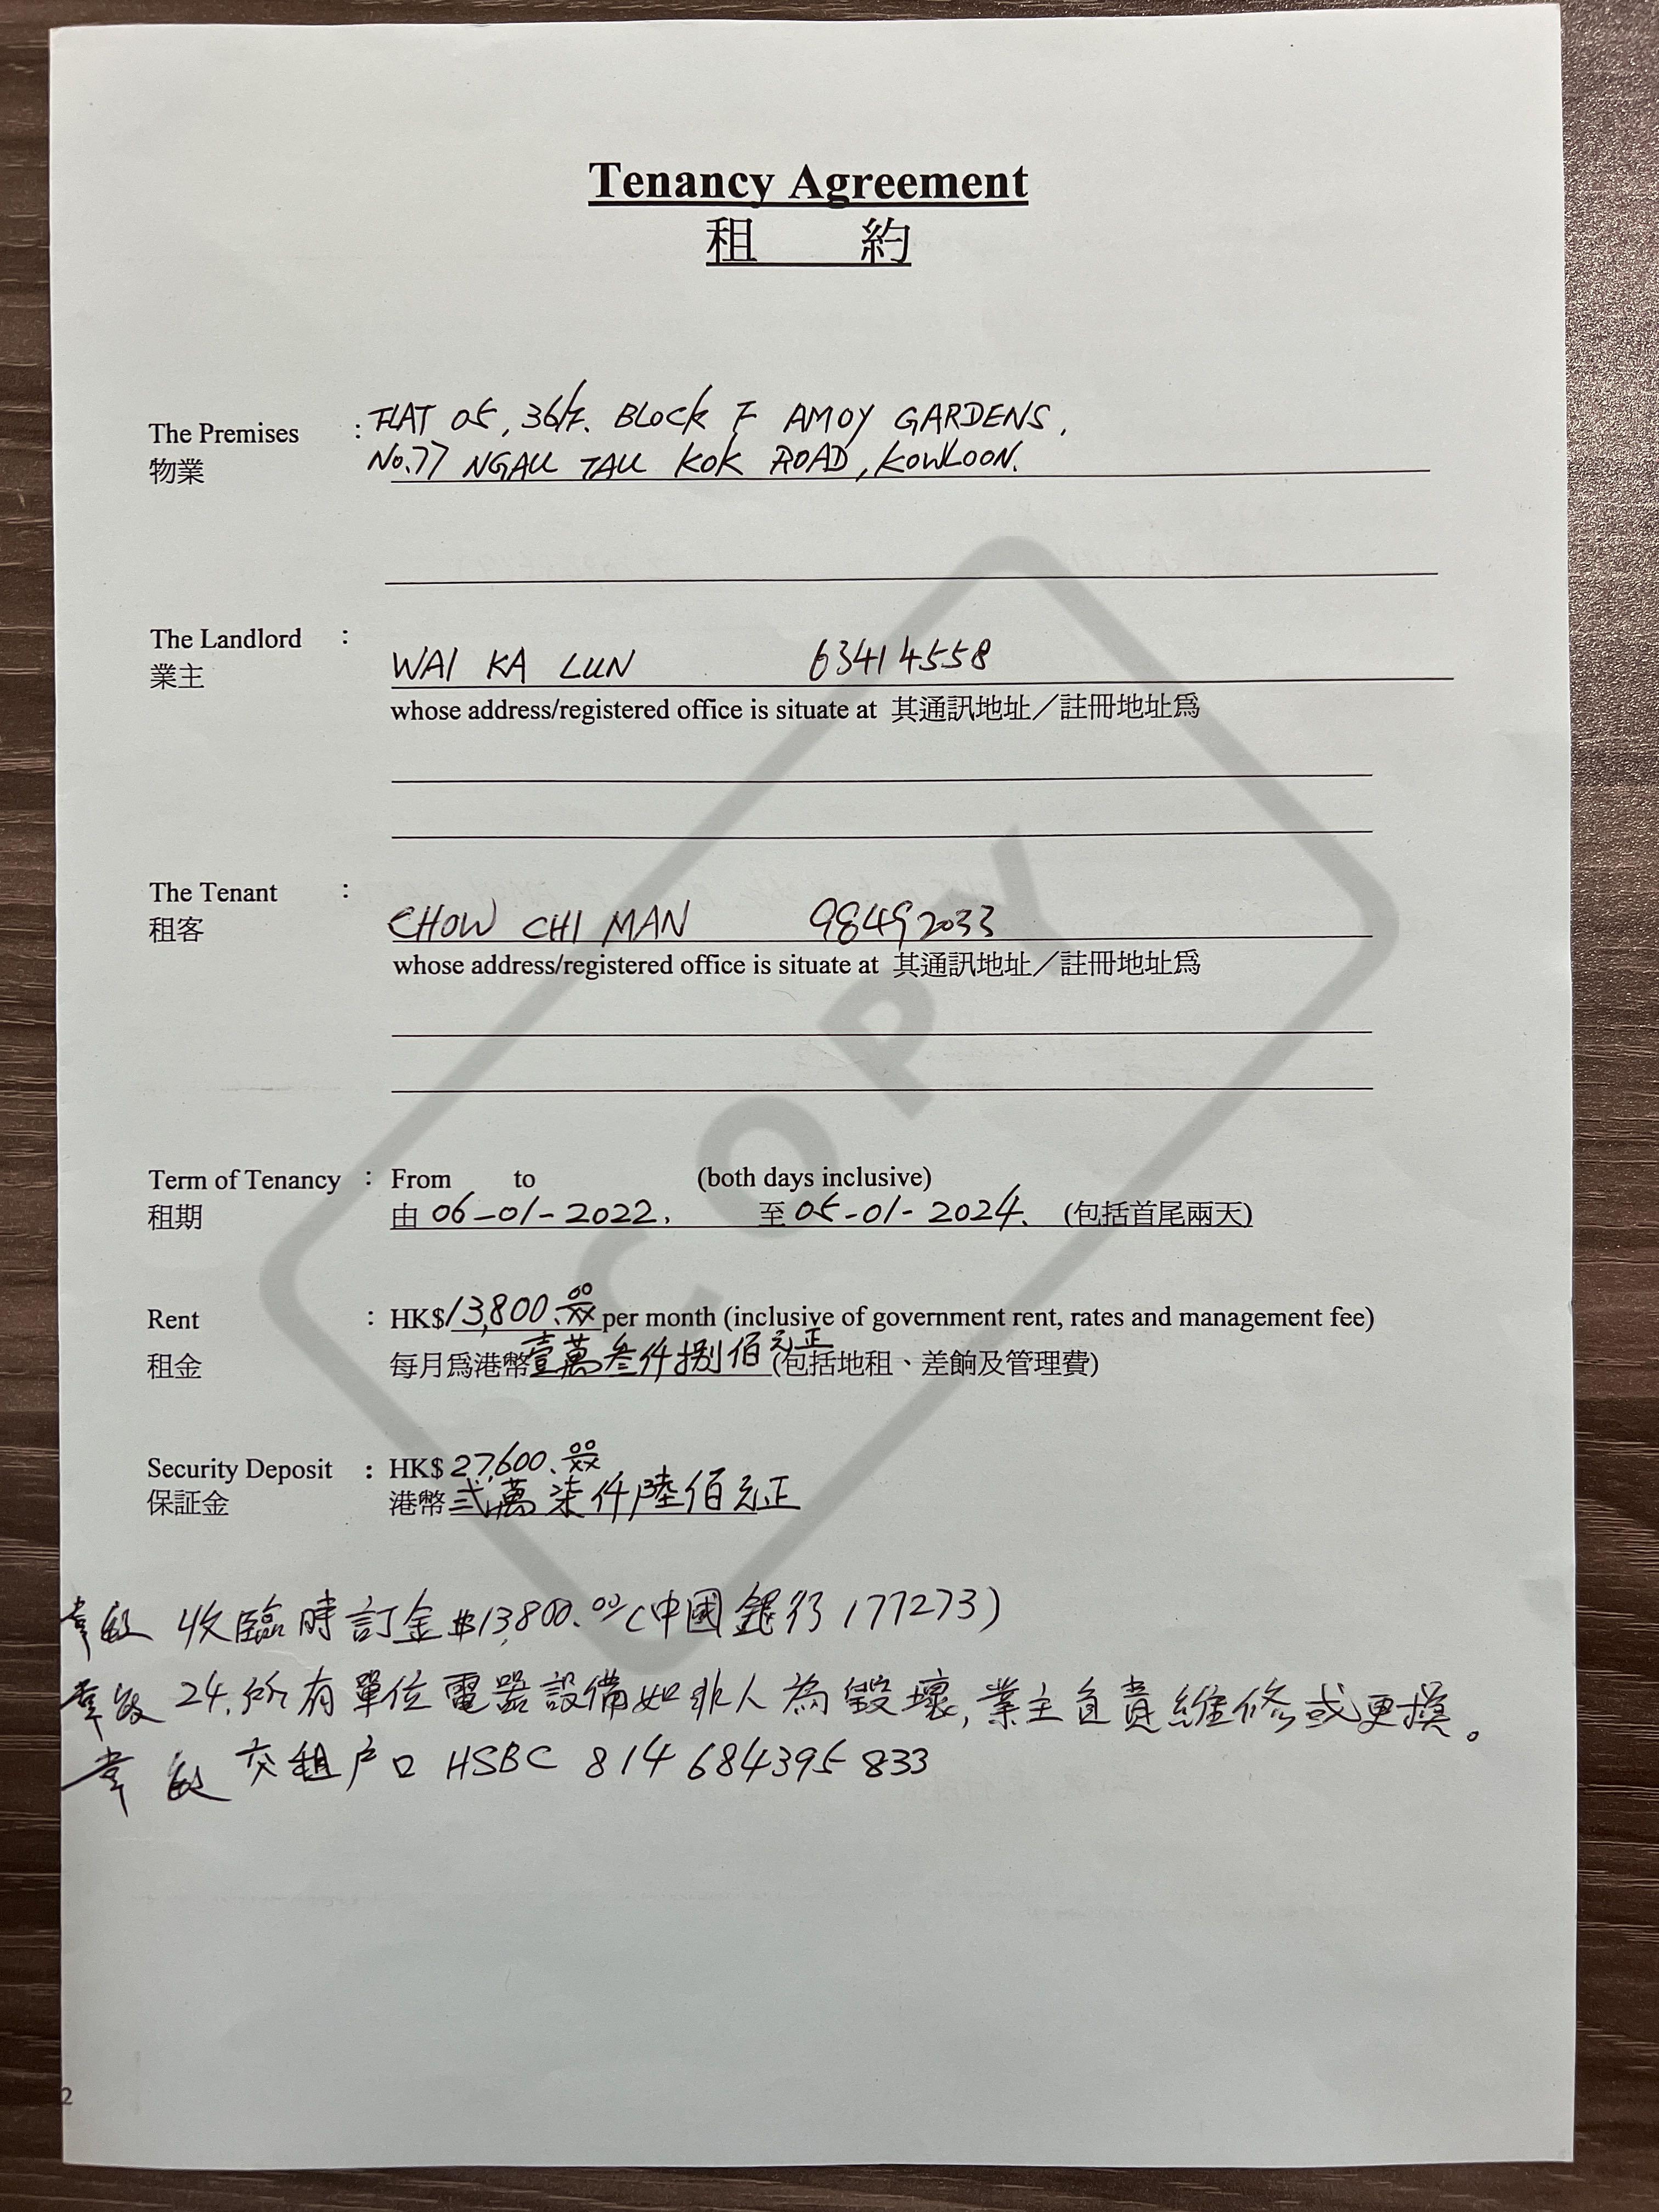 Tenancy Agreement
租 約
The Premises : FLAT 05, 36/F. BLOCK F AMOY GARDENS,
物業 No.77 NGAU TAU KOK ROAD, KOWLOON.
The Landlord :
業主 WAI KA LUN 63414558
whose address/registered office is situate at 其通訊地址／註冊地址爲
The Tenant :
租客 CHOW CHI MAN 98492033
whose address/registered office is situate at 其通訊地址／註冊地址爲
Term of Tenancy : From to (both days inclusive)
租期 由 06-01-2022. 至 05-01-2024. (包括首尾兩天)
Rent : HK$13,800.00/xx per month (inclusive of government rent, rates and management fee)
租金 每月爲港幣壹萬叁仟捌佰元正(包括地租、差餉及管理費)
Security Deposit : HK$ 27,600.00/xx
保証金 港幣 弍萬柒仟陸佰元正
收臨時訂金 $13,800.00 (中國銀行 177273)
24.所有單位電器設備如非人為毀壞,業主負責維修或更換。
交租戶口 HSBC 814 684395 833
COPY
2